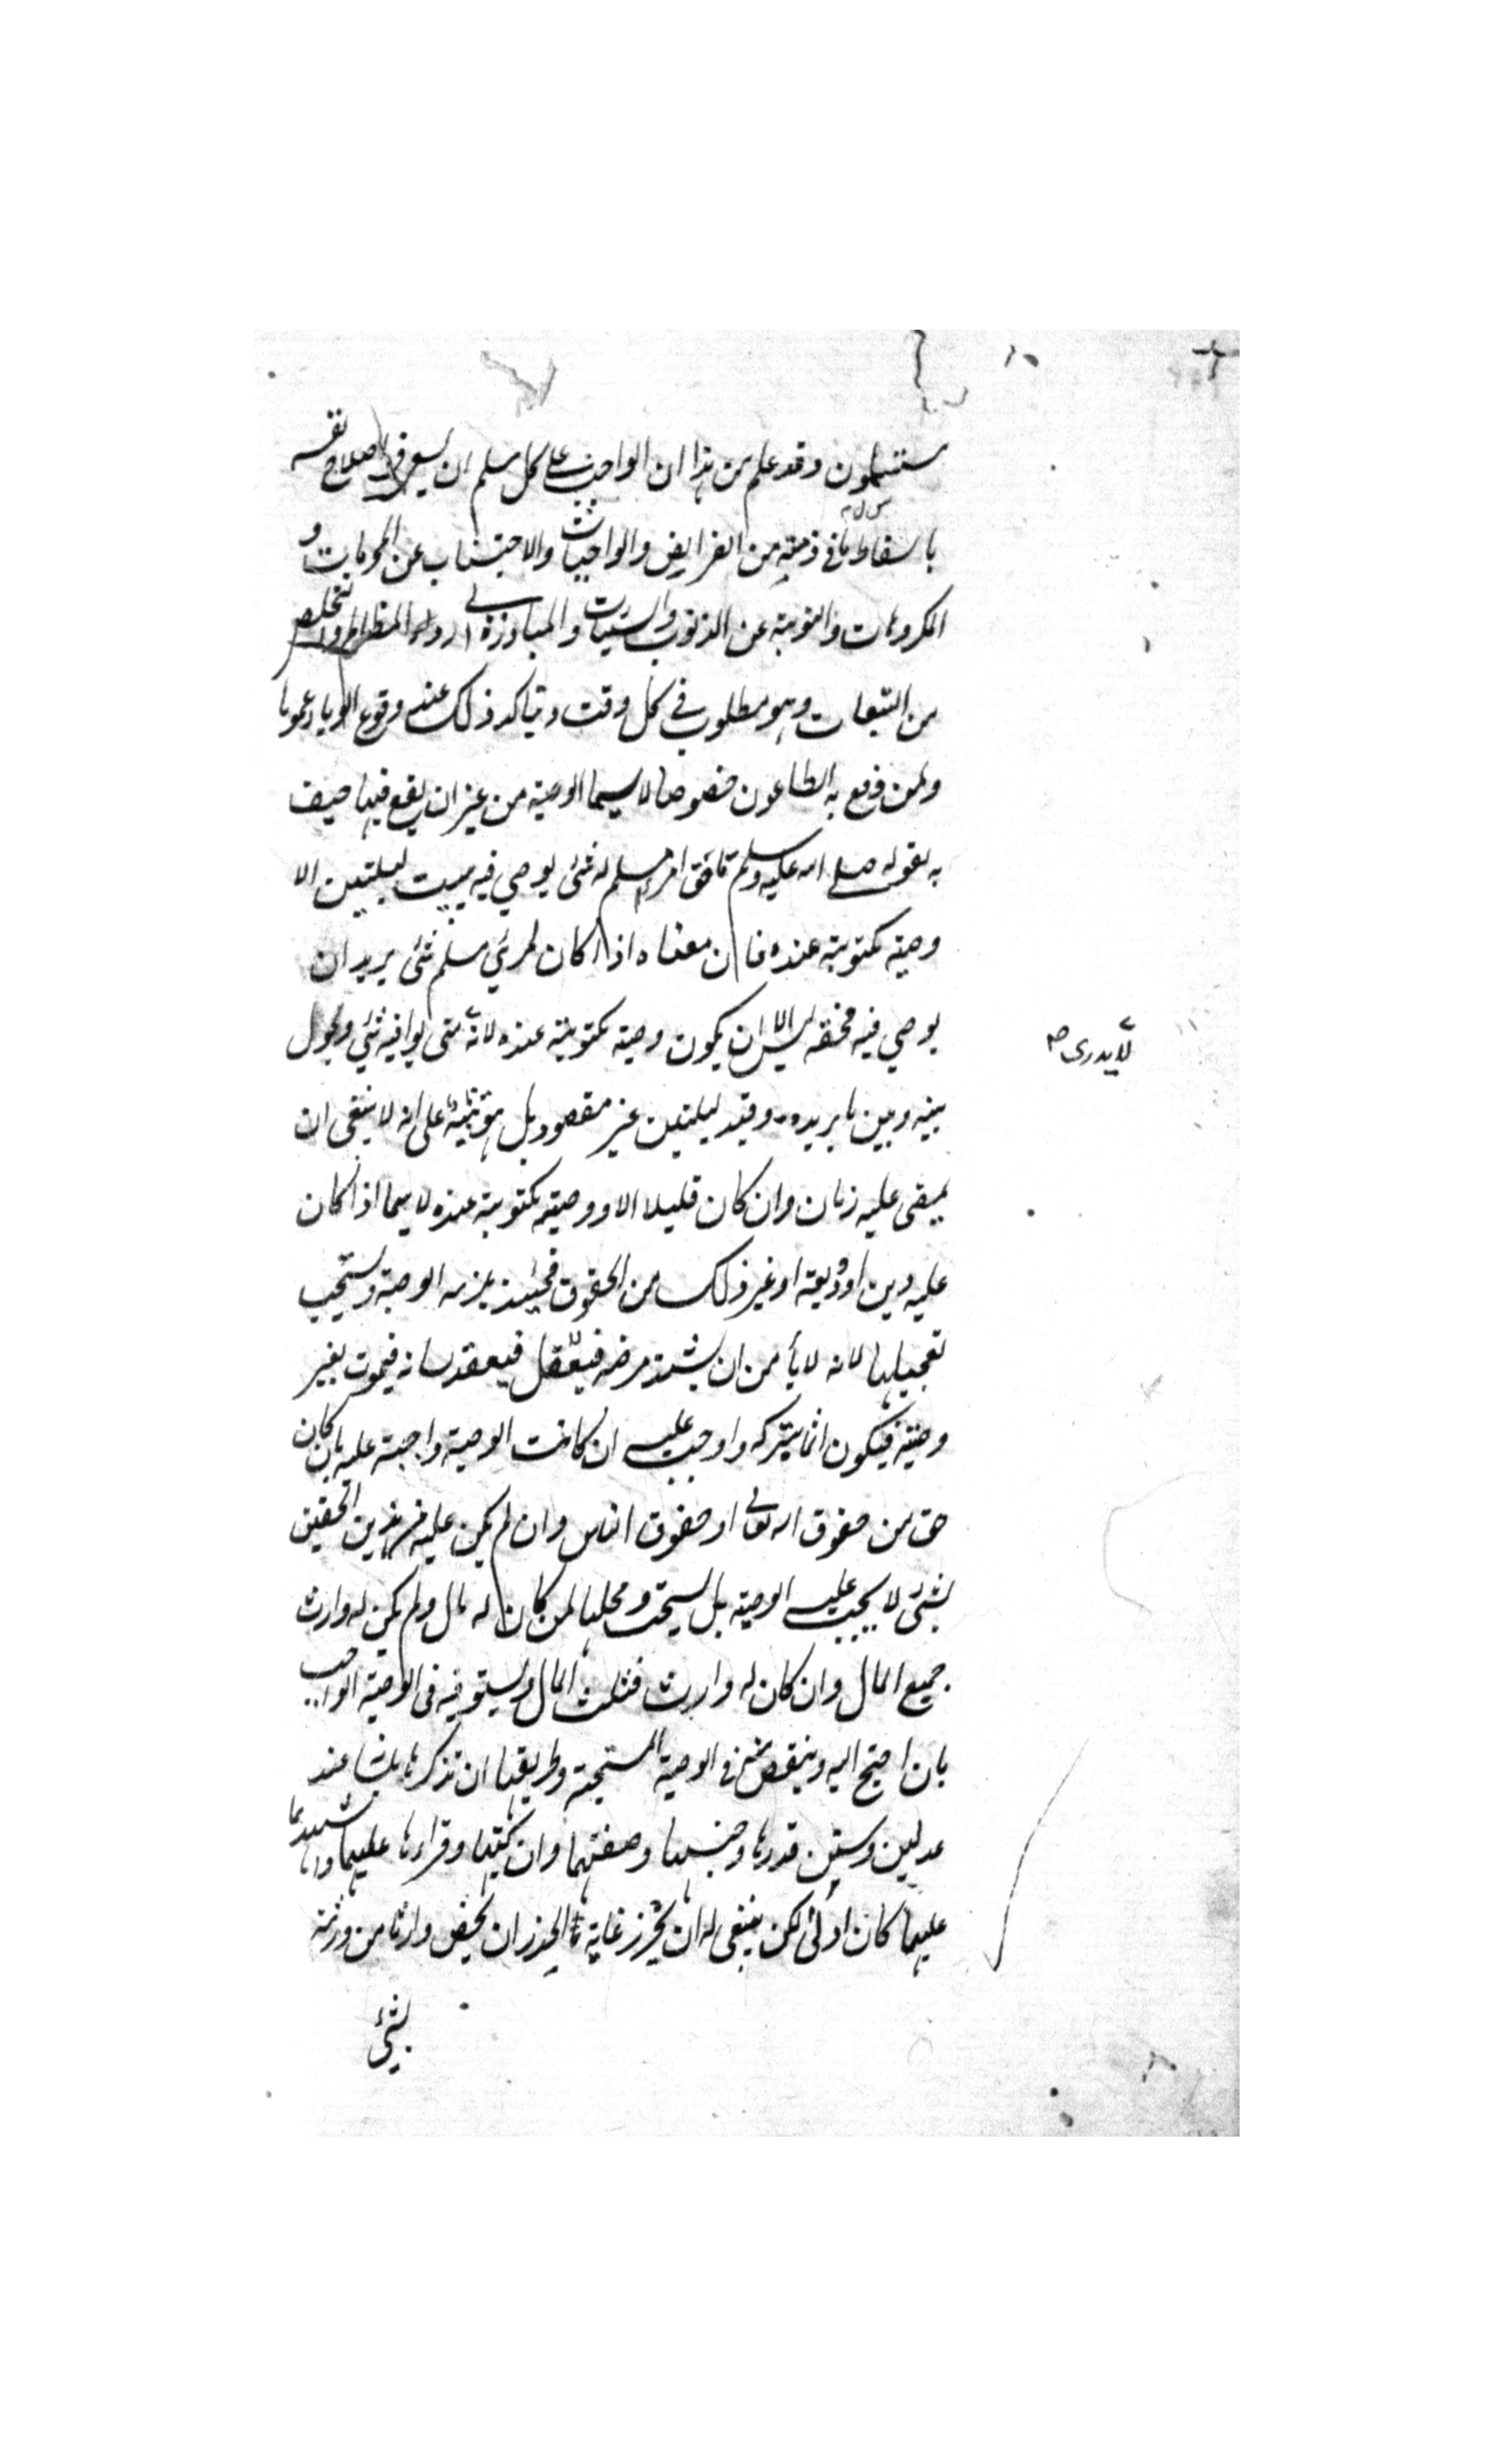 ستعلمون وقد علم من هذا ان الواجب على كل مسلم ان يسعى فى اصلاح نفسه
باسقاط ما فى ذمته من الفرايض والواجبات والاجتناب عن المحرمات و
المكروهات والتوبة عن الذنوب والسيئات والمبادرة الى رد المظالم والتخلص
من التبعات وهو مطلوب فى كل وقت ويتاكد ذلك عند وقوع الوباء عموما
ولمن وقع به الطاعون خصوصا لا سيما الوصية من غير ان يقع فيها حيف
لقوله صلى الله عليه وسلم ما حق امرئ مسلم له شئ يوصي فيه يبيت ليلتين الا
وصيته مكتوبة عنده فان معناه اذا كان لامرئ مسلم شئ يريد ان
يوصي فيه فحقه ليس الا ان يكون وصيته مكتوبة عنده لانه متى يوافيه شئ ويحول
لا يدرى صح
بينه وبين ما يريده وقيد ليلتين غير مقصود بل هو تنبيه على انه لا ينبغى ان
يمضى عليه زمان وان كان قليلا الا ووصيته مكتوبة عنده لا سيما اذا كان
عليه دين او وديعة او غير ذلك من الحقوق فحينئذ يلزمه الوصية ويستحب
تعجيلها لانه لا يأمن ان يشتد مرضه فيعقد لسانه فيموت بغير
وصية فيكون اثما بتركه واوجب عليه ان كانت الوصية واجبة عليه بان كان
حق من حقوق الله تعالى او حقوق الناس وان لم يكن عليه من هذين الحقين
بشئ لا يجب عليه الوصية بل يستحب ومحلها لمن كان له مال ولم يكن له وارث
جميع المال وان كان له وارث فثلث المال ويستوفيه فى الوصية الواجب
بان احتيج اليه وينقص منه فى الوصية المستحبة وطريقها ان تذكرها بلسانه عند
عدلين وتبين قدرها وجنسها وصفتها وان كتبها وقراها عليهما واشهدهما
عليهما كان اولى لكن ينبغى له ان يحرز غاية الحذر ان يخص وارثا من ورثته
بشئ